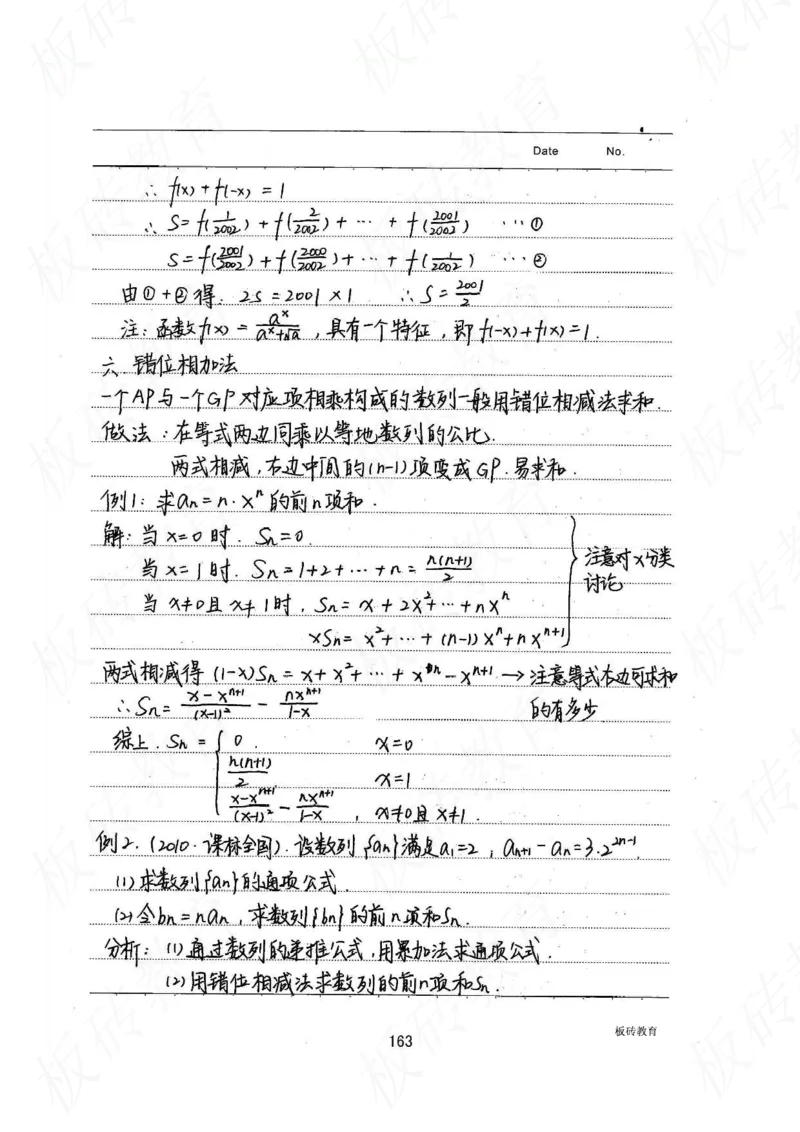 Date No.
∴ f(x) + f(-x) = 1
∴ S = f(1/2002) + f(2/2002) + … + f(2001/2002) …①
S = f(2001/2002) + f(2000/2002) + … + f(1/2002) …②
由①+②得. 2S = 2001 × 1 ∴ S = 2001/2
注: 函数f(x) = a^x/(a^x+√a) , 具有一个特征 , 即 f(-x)+f(x)=1.
六. 错位相加法
一个AP与一个GP对应项相乘构成的数列一般用错位相减法求和.
做法 : 在等式两边同乘以等地数列的公比.
两式相减 , 右边中间的(n-1)项变成GP. 易求和.
例1: 求an = n·x^n 的前n项和.
解: 当x=0时. Sn=0.
当x=1时. Sn=1+2+…+n = n(n+1)/2
当x≠0且x≠1时, Sn = x + 2x^2+…+nx^n
xSn = x^2+…+(n-1)x^n+nx^(n+1)
注意对x分类
讨论
两式相减得 (1-x)Sn = x+x^2+…+x^n - x^(n+1) → 注意等式右边可求和
的有多少.
∴ Sn = (x-x^(n+1))/(x-1)^2 - nx^(n+1)/(1-x)
综上. Sn = { 0. x=0
n(n+1)/2 x=1
(x-x^(n+1))/(x-1)^2 - nx^(n+1)/(1-x) , x≠0且x≠1.
例2. (2010·课标全国). 设数列{an}满足a1=2 , an+1 - an = 3·2^(2n-1).
(1) 求数列{an}的通项公式.
(2) 令bn = nan , 求数列{bn}的前n项和Sn.
分析: (1) 通过数列的递推公式 , 用累加法求通项公式.
(2) 用错位相减法求数列的前n项和Sn.
163
板砖教育